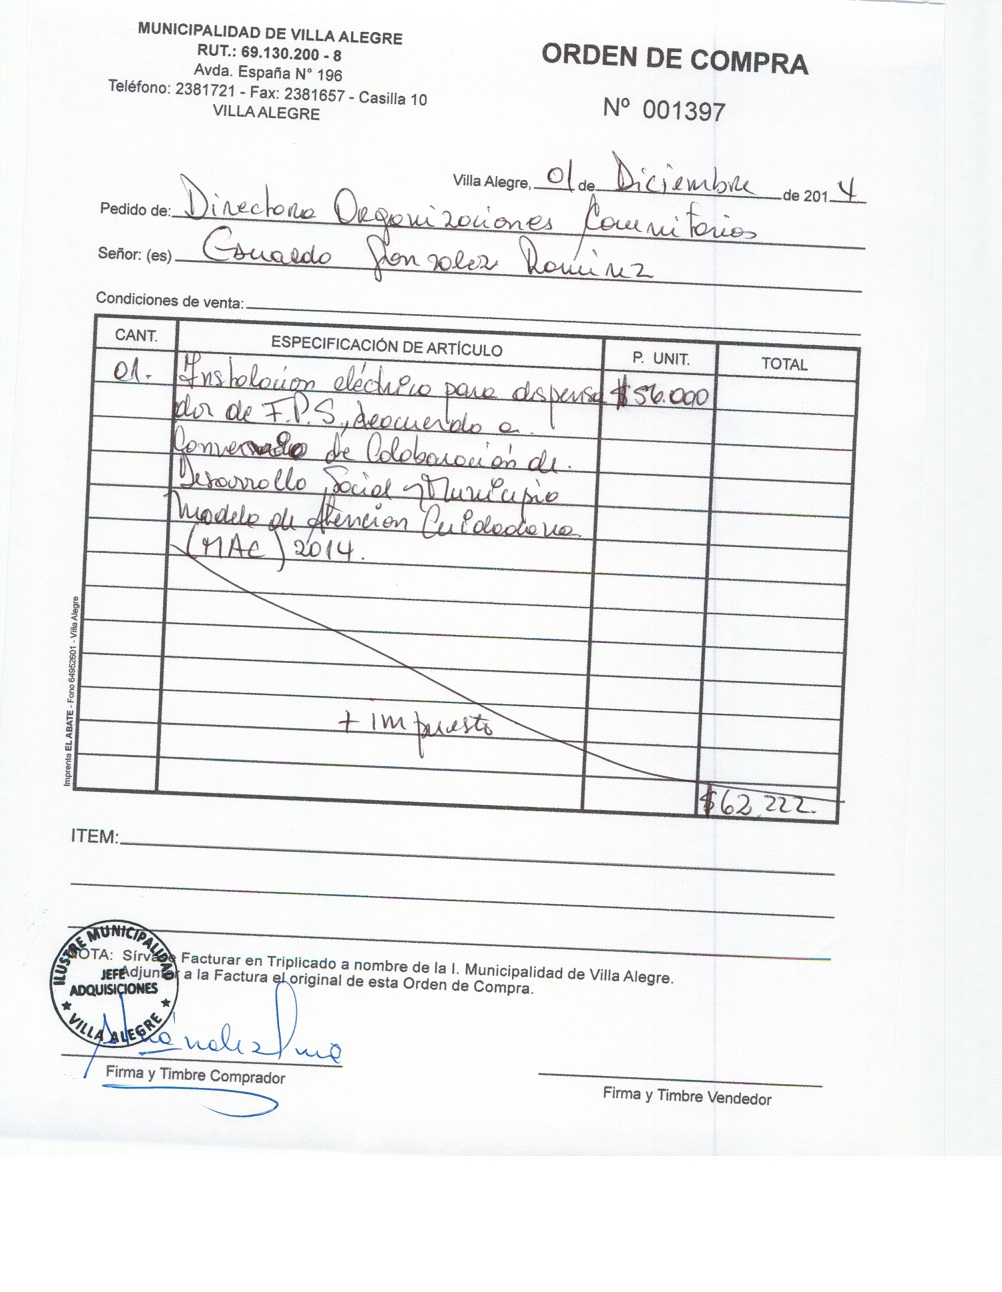 MUNICIPALIDAD DE VILLA ALEGRE
RUT.: 69.130.200 - 8
Avda. España N° 196
Teléfono: 2381721 - Fax: 2381657 - Casilla 10
VILLA ALEGRE
ORDEN DE COMPRA
Nº 001397
Villa Alegre, 01 de Diciembre de 2014
Pedido de: Directora Organizaciones Comunitarias
Señor: (es) Eduardo Gonzalez Ramirez
Condiciones de venta:
CANT. ESPECIFICACIÓN DE ARTÍCULO P. UNIT. TOTAL
01. Instalacion eléctrica para dispensa $56.000
dor de F.P.S., deacuerdo a
de Colaboración de
Desarrollo Social y Municipio
Modelo de Atencion Cuidadana
(MAC) 2014.
+ impuesto
$62.222.
Imprenta EL ABATE - Fono 64952601 - Villa Alegre
ITEM:
NOTA: Sírvase Facturar en Triplicado a nombre de la I. Municipalidad de Villa Alegre.
Adjuntar a la Factura el original de esta Orden de Compra.
ILUSTRE MUNICIPALIDAD
JEFE
ADQUISICIONES
VILLA ALEGRE
Firma y Timbre Comprador
Firma y Timbre Vendedor